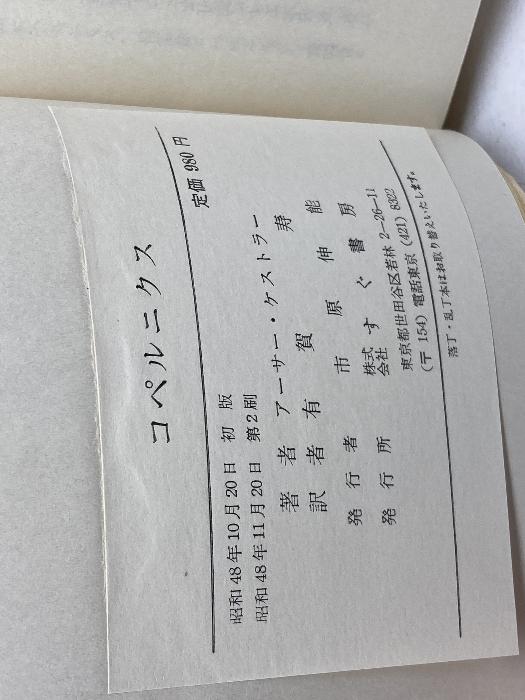 コペルニクス
定価 980 円
昭和 48 年 10 月 20 日 初 版
昭和 48 年 11 月 20 日 第 2 刷
著 者 アーサー・ケストラー
訳 者 有 賀 寿
発 行 者 市 原 伸 能
発 行 所 株式会社 すぐ書房
東京都世田谷区若林 2-26-11
(〒 154) 電話東京 (421) 8322
落丁・乱丁本はお取り替えいたします。